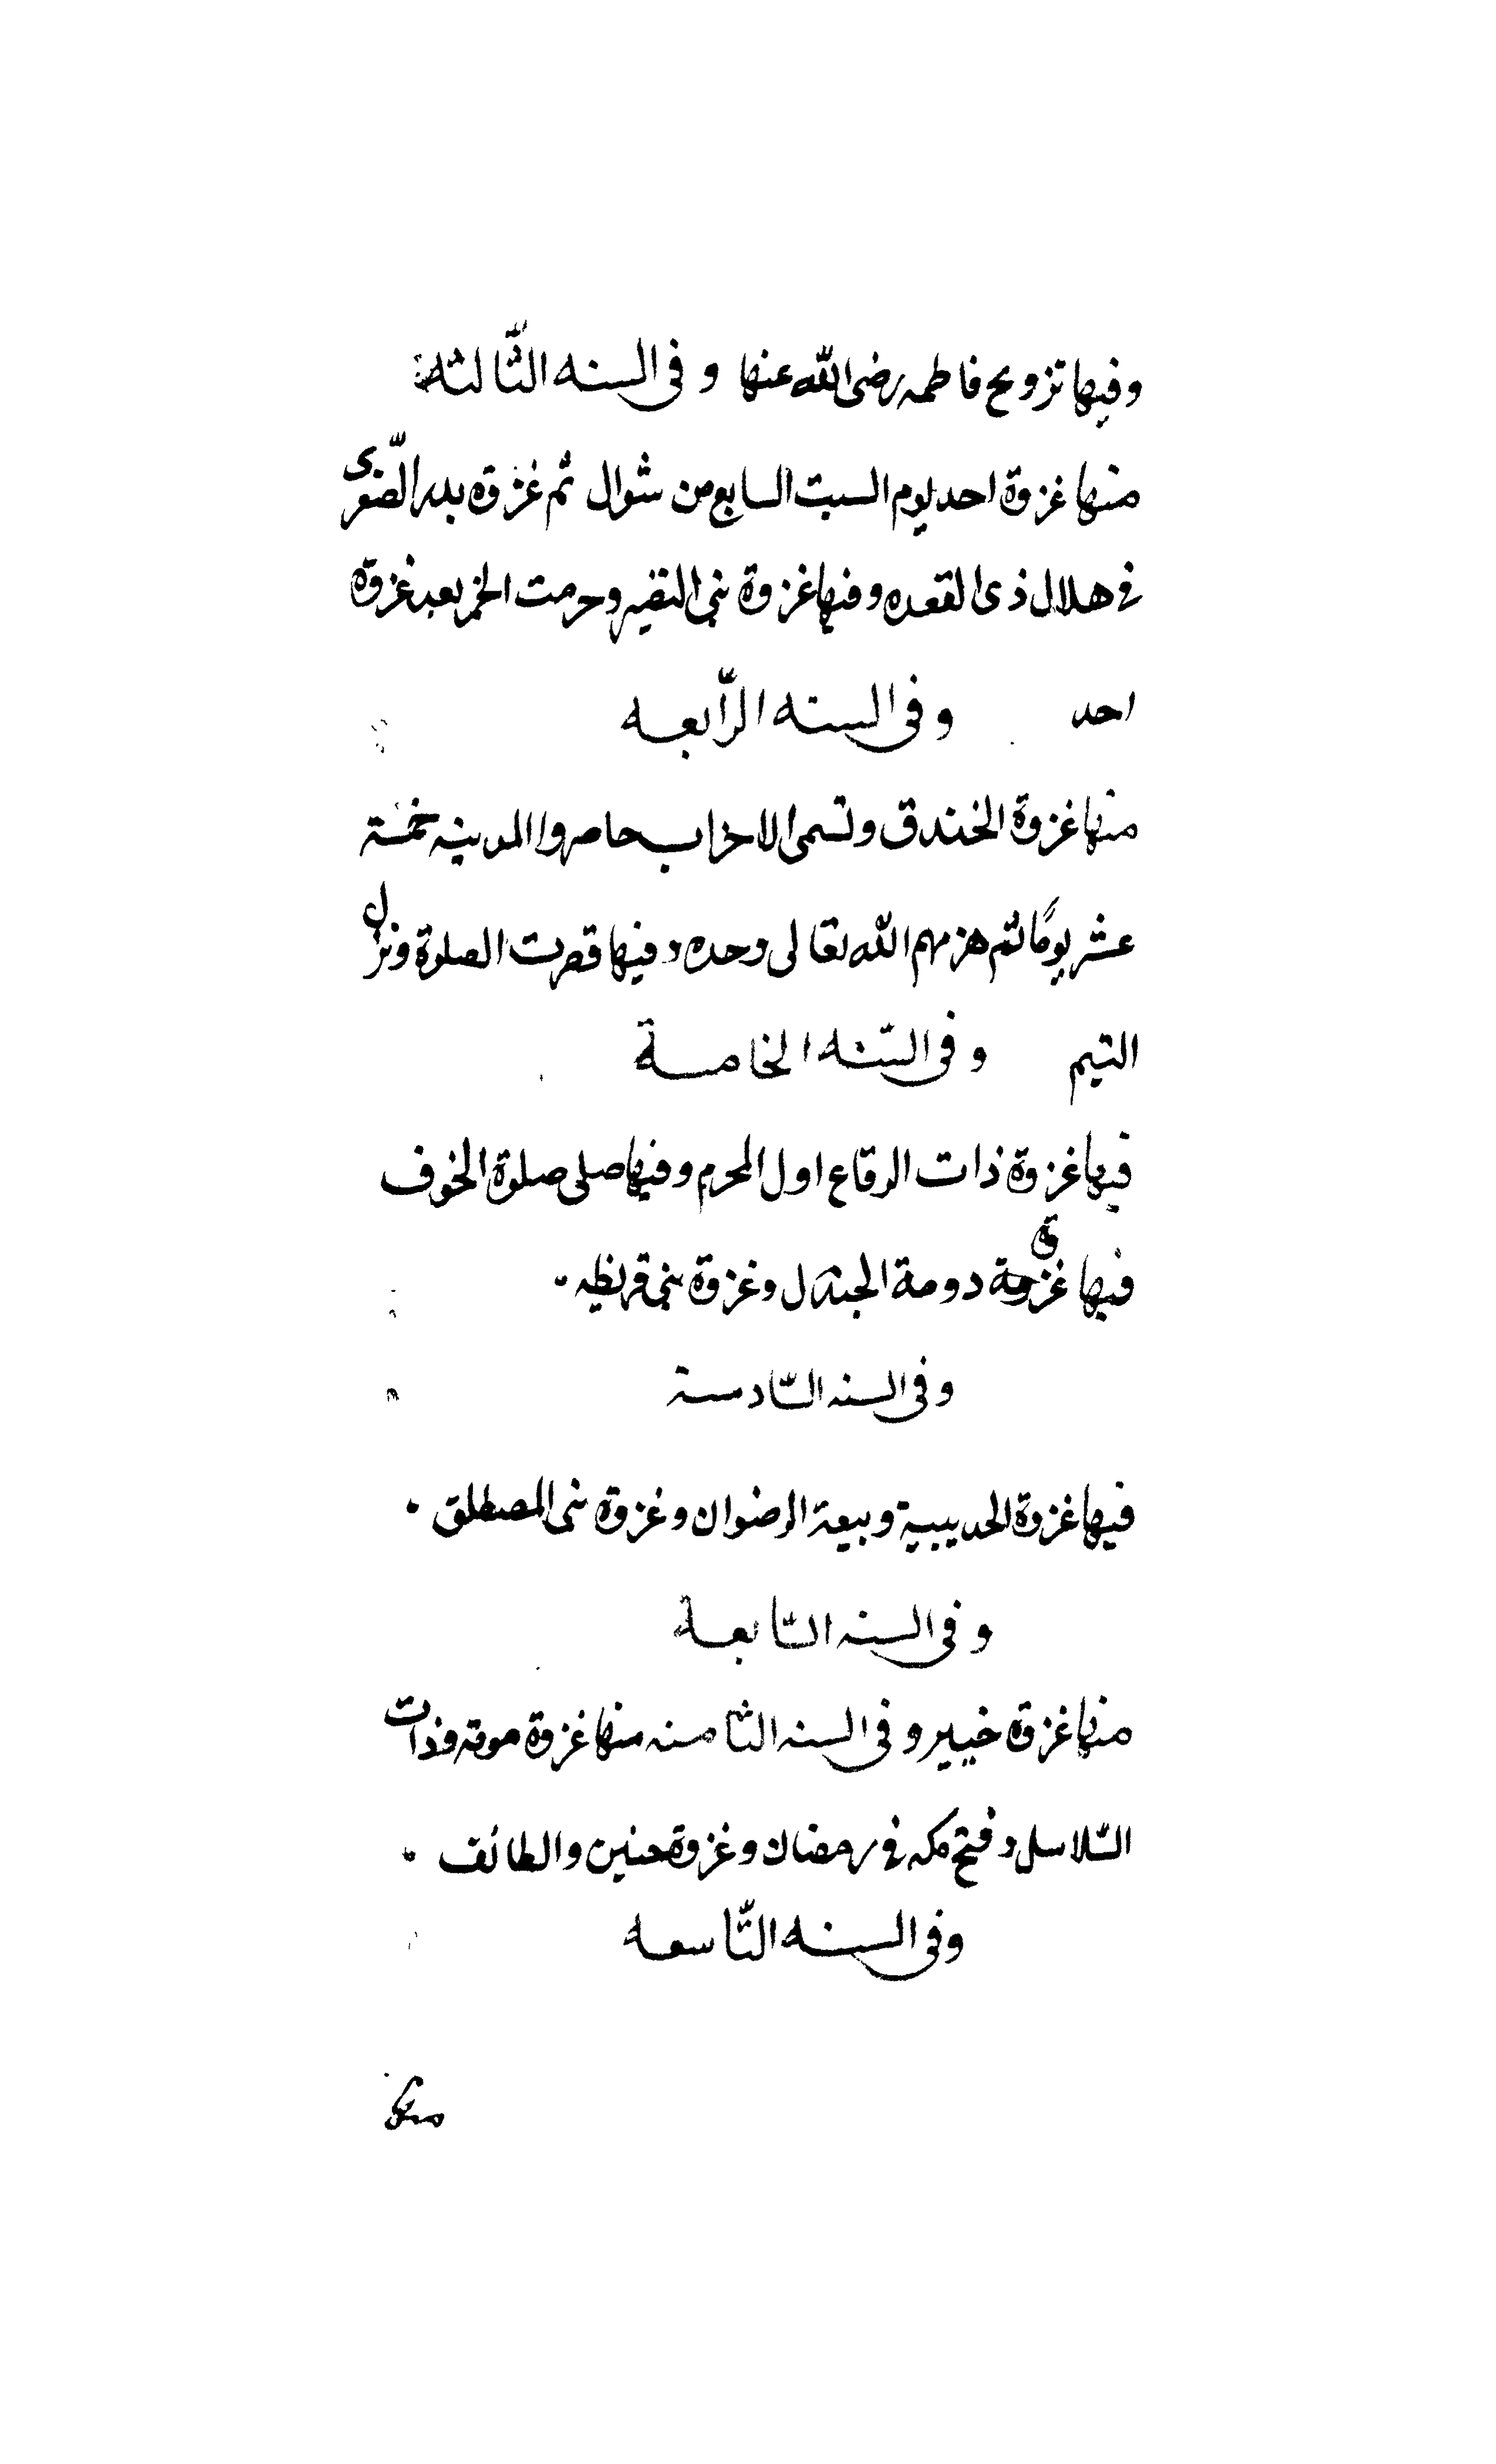 وفيها تزويج فاطمه رضى الله عنها وفى السنه الثّالثه
منها غزوة احد يوم السبت السابع من شوال ثم غزوه بدر الصّغرى
فى هلال ذى القعده وفيها غزوة بنى النضير وحرمت الخمر بعد غزوه
احد وفى السنه الرّابعه
منها غزوة الخندق وتسمى الاحزاب حاصروا المدينه خمسة
عشر يومًا ثم هزمهم الله تعالى وحده وفيها قصرت الصلوة ونزل
التيم وفى السّنه الخامسة
فيها غزوة ذات الرقاع اول المحرم وفيها صلى صلوة الخوف
فيها غزوة دومة الجندل وغزوة بنى قريظه .
وفى السنه السّادسة
فيها غزوة الحديبية وبيعة الرضوان وغزوه بنى المصطلق .
وفى السنه السّابعة
منها غزوه خيبر وفى السنه الثامنه منها غزوة موته وذات
السّلاسل وفتح مكه فى رمضان وغزوة حنين والطائف .
وفى السنه التّاسعه
منها